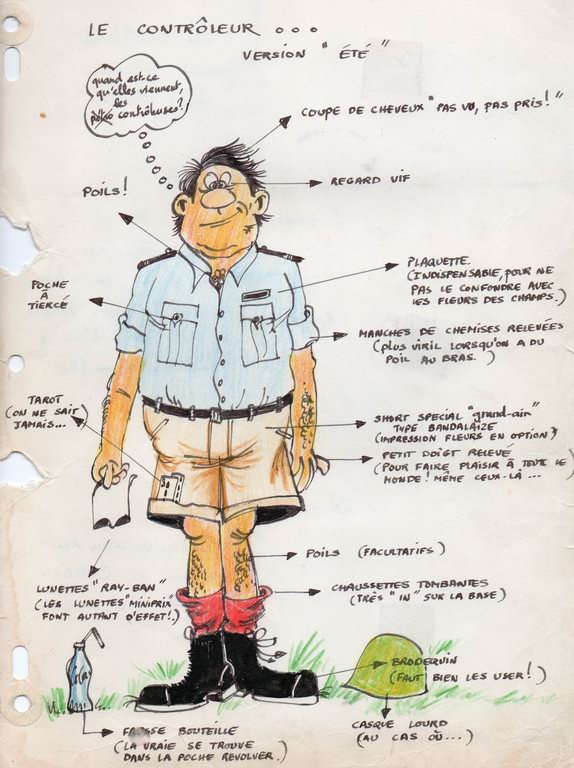 LE CONTRÔLEUR ...
VERSION "ÉTÉ"
quand est-ce
qu'elles viennent,
les
contrôleuses?
COUPE DE CHEVEUX "PAS VU, PAS PRIS!"
REGARD VIF
POILS!
PLAQUETTE.
(INDISPENSABLE, POUR NE
PAS LE CONFONDRE AVEC
LES FLEURS DES CHAMPS.)
POCHE
À
TIERCÉ
MANCHES DE CHEMISES RELEVÉES
(PLUS VIRIL LORSQU'ON A DU
POIL AU BRAS.)
TAROT
(ON NE SAIT
JAMAIS...
SHORT SPECIAL "grand-air"
TYPE BANDALAIZE
(IMPRESSION FLEURS EN OPTION)
PETIT DOIGT RELEVÉ
(POUR FAIRE PLAISIR À TOUT LE
MONDE! MÊME CEUX-LÀ...
POILS (FACULTATIFS)
CHAUSSETTES TOMBANTES
(TRÈS "IN" SUR LA BASE)
LUNETTES "RAY-BAN"
(LES LUNETTES "MINIPRIX"
FONT AUTANT D'EFFET!)
BRODEQUIN
(FAUT BIEN LES USER!)
CASQUE LOURD
(AU CAS OÙ...)
FAUSSE BOUTEILLE
(LA VRAIE SE TROUVE
DANS LA POCHE REVOLVER.)